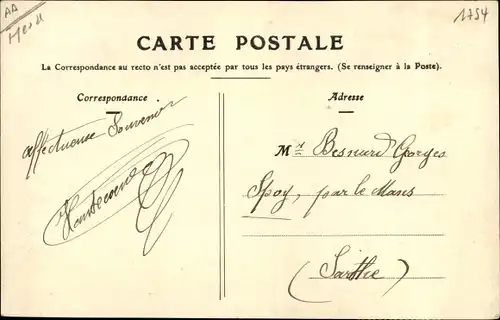 AA
1754
CARTE POSTALE
La Correspondance au recto n'est pas acceptée par tous les pays étrangers. (Se renseigner à la Poste).
Correspondance
Adresse
affectueuse Souvenir
Mr Besnard Georges
Spay, par le Mans
(Sarthe)